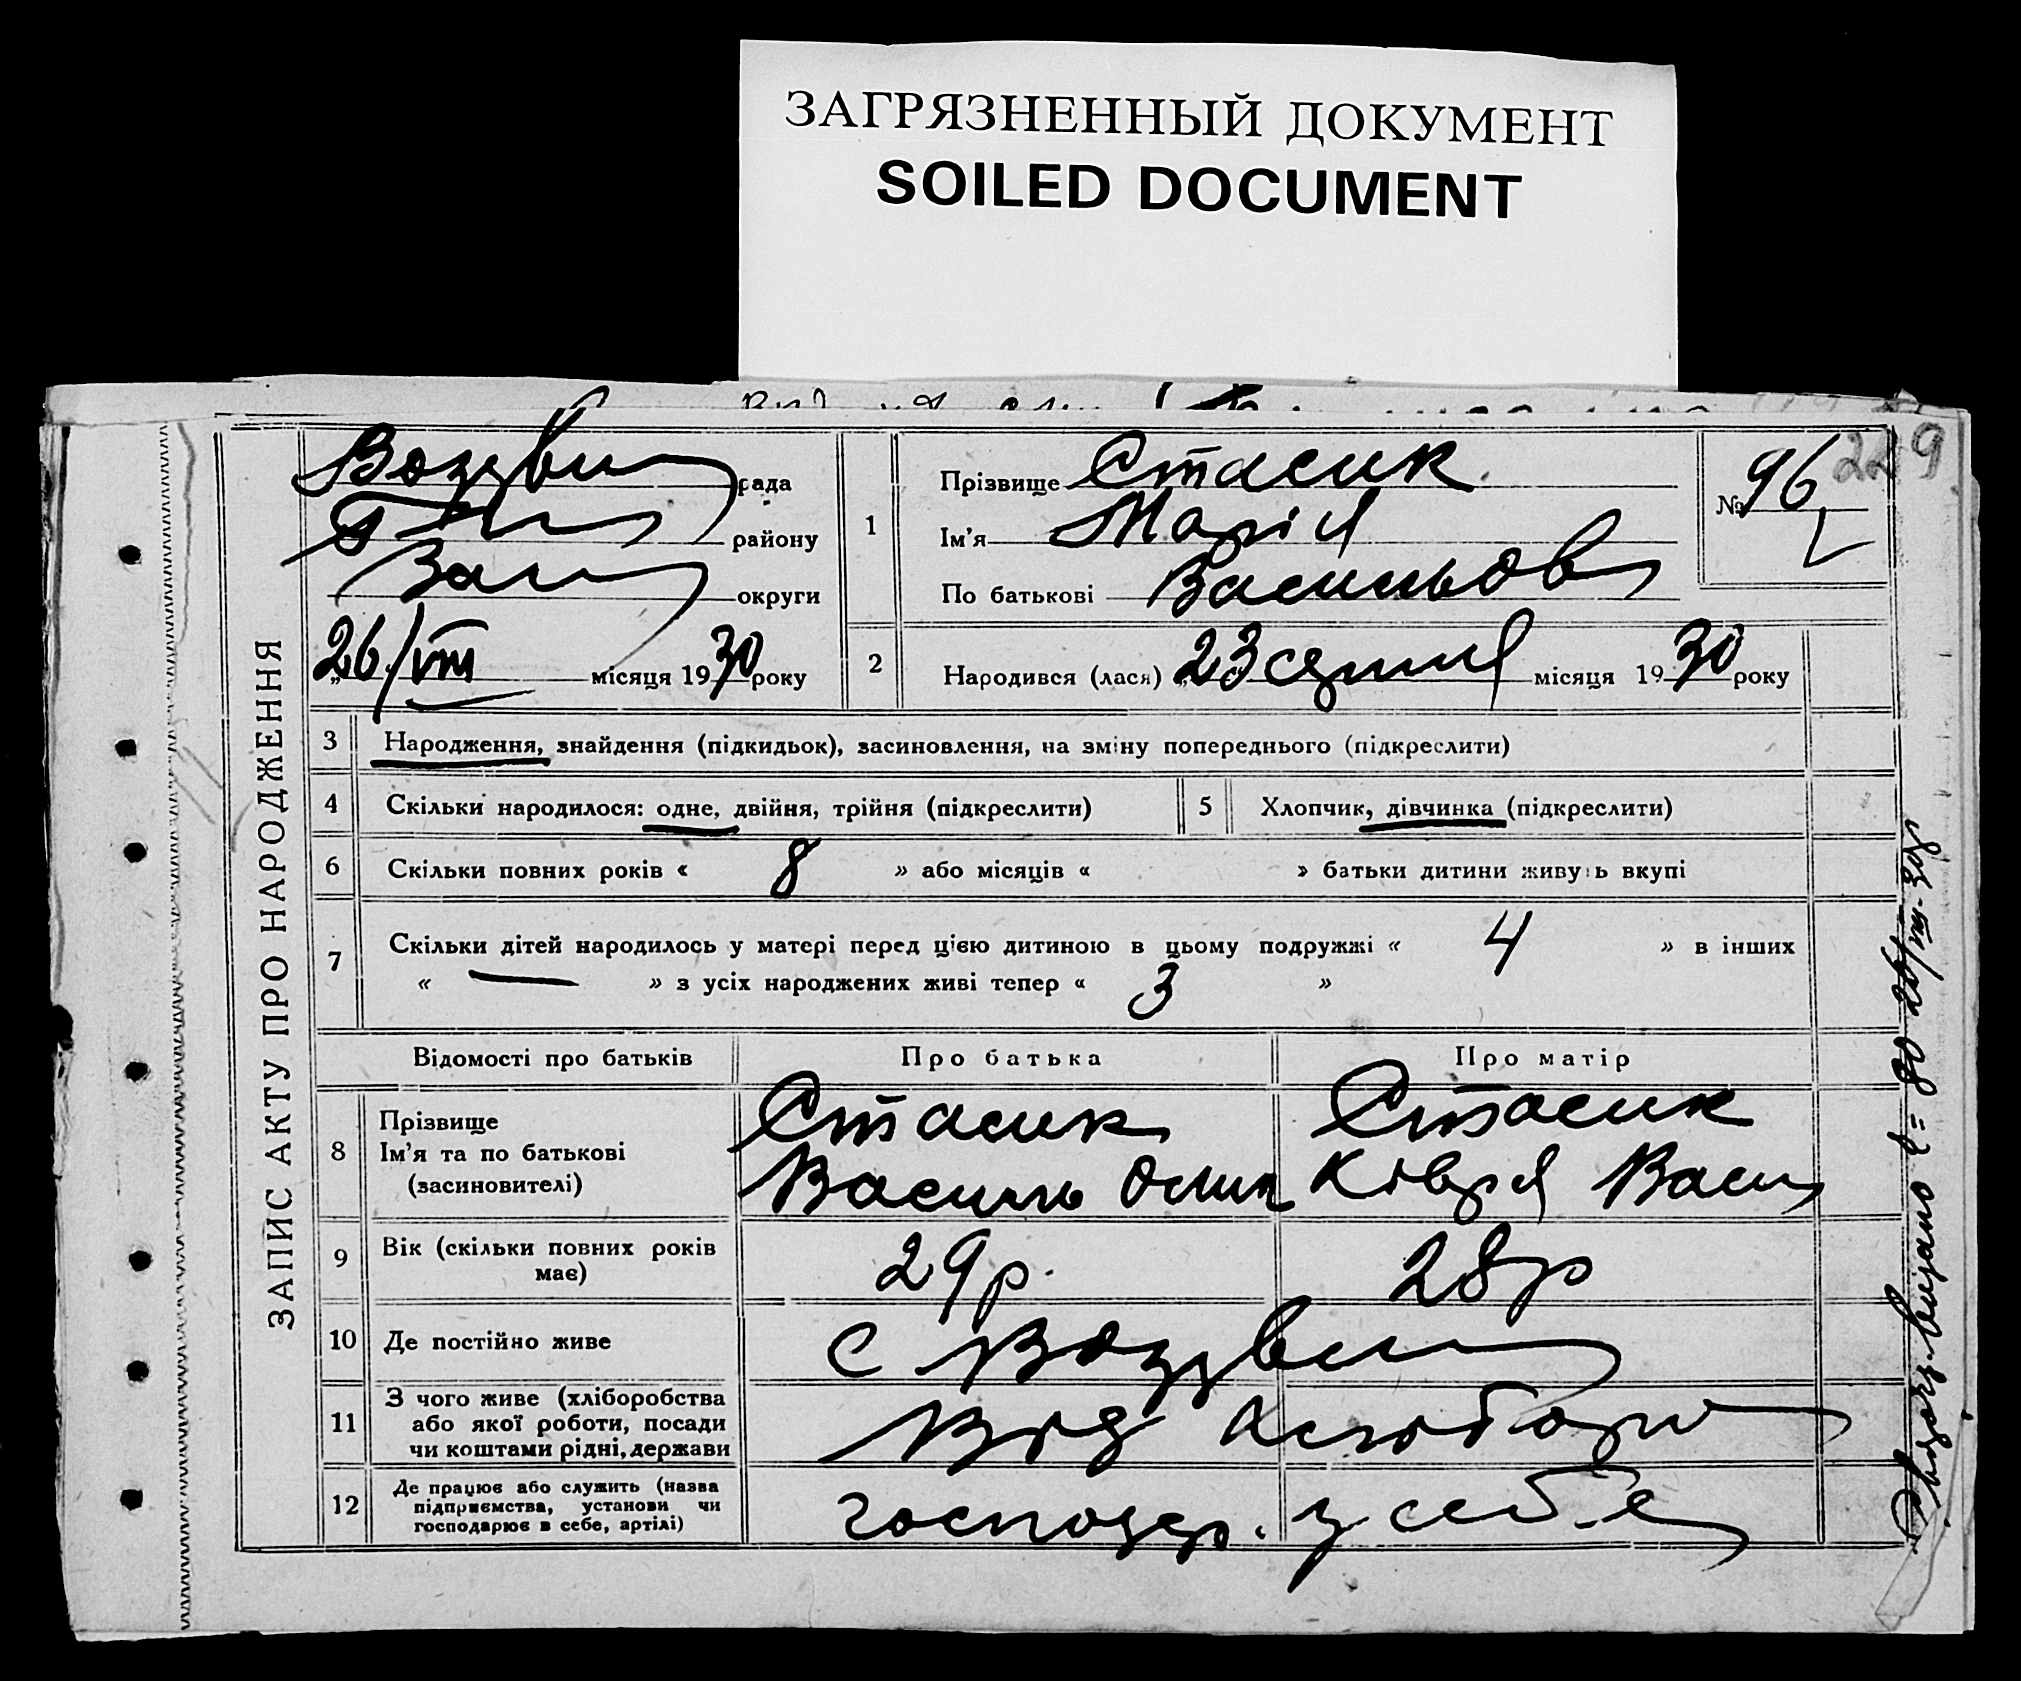 ЗАГРЯЗНЕННЫЙ ДОКУМЕНТ
SOILED DOCUMENT
229
ЗАПИС АКТУ ПРО НАРОДЖЕННЯ
рада
району
округи
26/VIII місяця 1930 року
1
Прізвище Стасик
Ім'я Марія
По батькові Васильов
№ 96
2 Народився (лася) „23 серпня місяця 1930 року
3 Народження, знайдення (підкидьок), засиновлення, на зміну попереднього (підкреслити)
4 Скільки народилося: одне, двійня, трійня (підкреслити) 5 Хлопчик, дівчинка (підкреслити)
6 Скільки повних років « 8 » або місяців « » батьки дитини живуть вкупі
7 Скільки дітей народилось у матері перед цією дитиною в цьому подружжі « 4 » в інших
« — » з усіх народжених живі тепер « 3 »
Відомості про батьків Про батька Про матір
8 Прізвище
Ім'я та по батькові
(засиновителі)
Стасик
Василь
Стасик
Васи
9 Вік (скільки повних років
має)
29 р. 28 р
10 Де постійно живе с
11 З чого живе (хліборобства
або якої роботи, посади
чи коштами рідні, держави
Від
12 Де працює або служить (назва
підприємства, установи чи
господарює в себе, артілі)
господар. у себе
видано